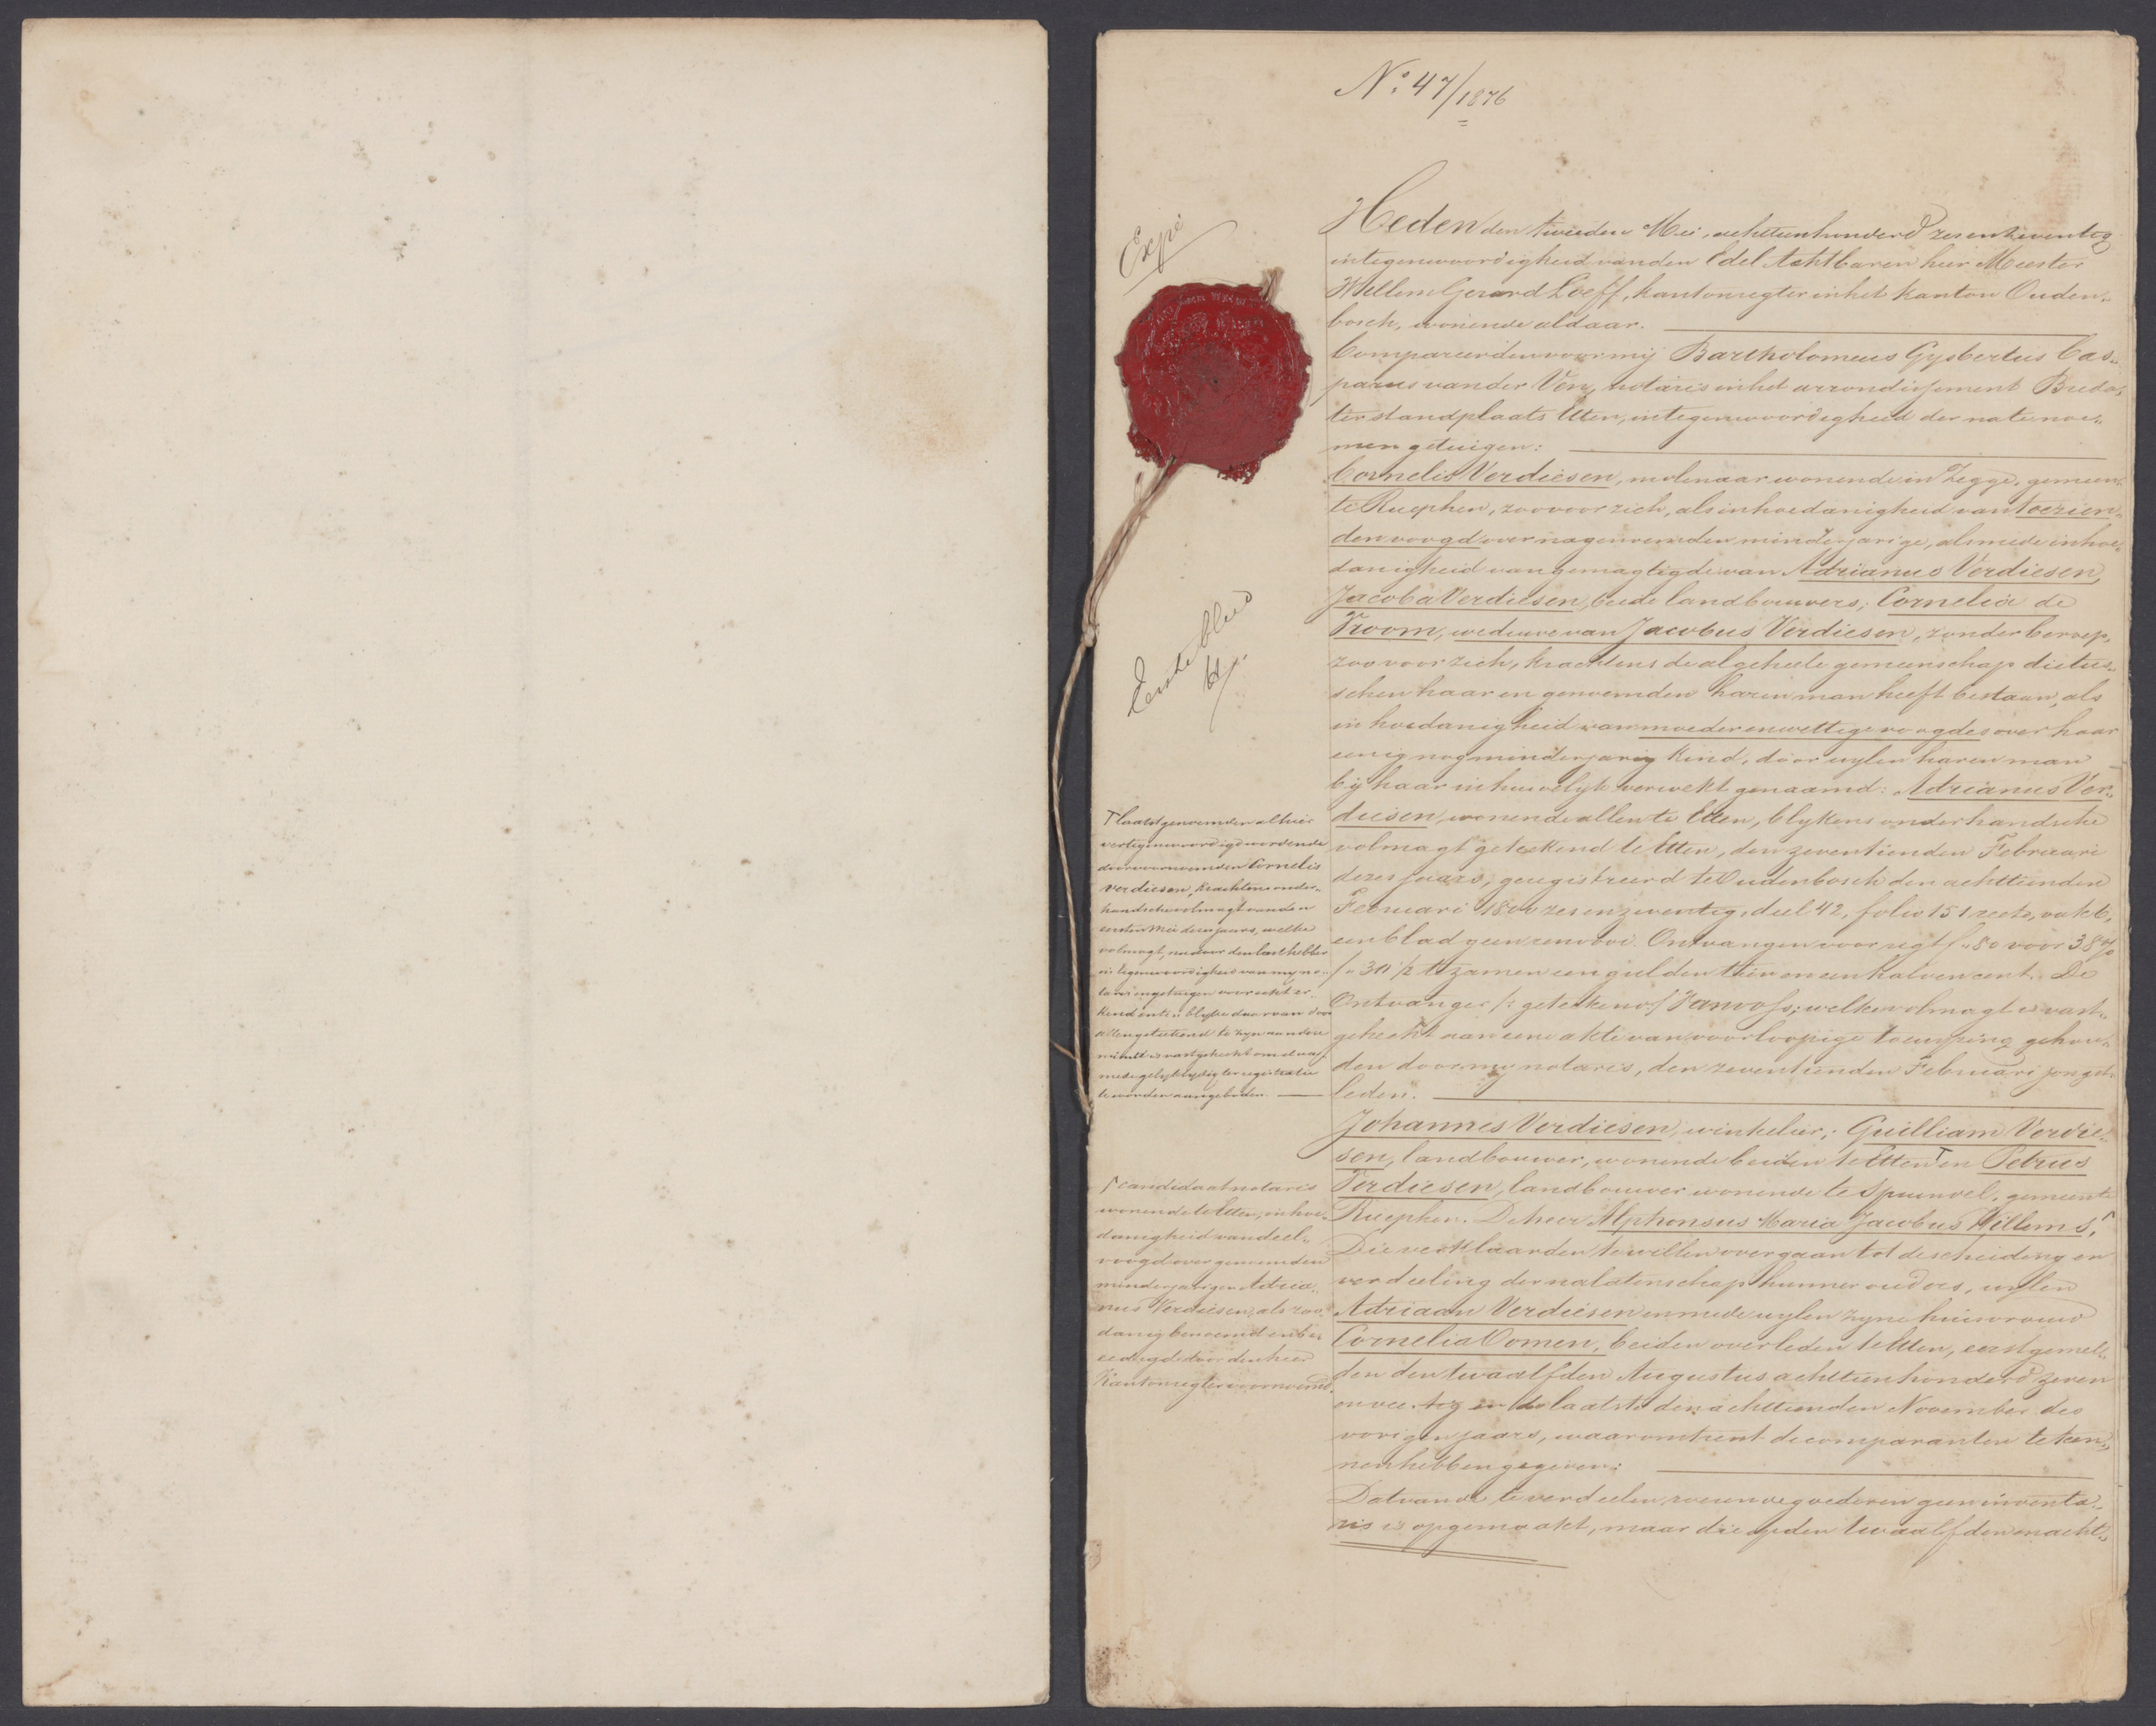 No. 47/1876
Expe
Heden den tweeden Mei, achttienhonderd zesenzeventig
in tegenwoordigheid van den Edel Achtbaren heer Meester
Willem Gerard Loeff, kantonregter in het kanton Ouden„
bosch, wonende aldaar.
Compareerden voor mij Bartholomeus Gysbertus Cas„
parus van der Ven, notaris in het arrondissement Breda,
ter standplaats Etten, in tegenwoordigheid der na te noe„
men getuigen:
Cornelis Verdiesen, molenaar wonende in Zegge, gemeen„
te Rucphen, zoo voor zich, als in hoedanigheid van toezien„
den voogd over nagenoemden minderjarige, alsmede in hoe„
danigheid van gemagtigde van Adrianus Verdiesen,
Jacoba Verdiesen, beide landbouwers; Cornelia de
Vroom, weduwe van Jacobus Verdiesen, zonder beroep,
zoo voor zich, krachtens de algeheele gemeenschap die tus„
schen haar en genoemden haren man heeft bestaan, als
in hoedanigheid van moeder en wettige voogdes over haar
eenig nog minderjarig kind, door wylen haren man
by haar in huwelyk verwekt genaamd: Adrianus Ver„
diesen, wonende allen te Etten, blykens onderhandsche
volmagt geteekend te Etten, den zeventienden Februari
dezes jaars, geregistreerd te Oudenbosch den achttienden
Februari 1800 zesenzeventig, deel 42, folio 151 recto, vak 6,
een blad geen renvooi. Ontvangen voor regt f „80 voor 38 %
f „ 30½ te zamen een gulden tien en een halven cent. De
Ontvanger /: geteekend :/ ; welke volmagt is vast„
gehecht aan eene akte van voorloopige toewyzing gehou„
den door my notaris, den zeventienden Februari jongst„
leden.
Johannes Verdiesen, winkelier; Guilliam Verdie„
sen, landbouwer, wonende beiden te Etten ⊤ en Petrus
Verdiesen, landbouwer wonende te Spurnvel, gemeente
Rucphen. De heer Alphonsus Maria Jacobus Willems, ⌈
Die verklaarden te willen overgaan tot de scheiding en
verdeeling der nalatenschap hunner ouders, wylen
Adriaan Verdiesen en mede wylen zyne huisvrouw
Cornelia Oomen, beiden overleden te Etten, eerstgemel„
den den twaalfden Augustus achttienhonderd zeven
en veertig en de laatste den achttienden November des
vorigen jaars, waaromtrent de comparanten te ken„
nen hebben gegeven:
Dat van de te verdeelen roerende goederen geen inventa„
ris is opgemaakt, maar die op den twaalfden en acht„
Eerste blad
⊤ laatstgenoemden alhier
vertegenwoordigd wordende
door voornoemden Cornelis
Verdiesen, krachtens onder„
handsche volmagt van den
eersten Mei dezes jaars, welke
volmagt, na door den lasthebber
in tegenwoordigheid van my no„
taris en getuigen voor echt er„
kend en ten blyke daarvan door
allen geteekend te zyn aan deze
minuut is vastgehecht om daar
mede gelyktydig ter registratie
te worden aangeboden.
⌈ candidaat notaris
wonende te Etten, in hoe„
danigheid van deel„
voogd over genoemden
minderjarigen Adria„
nus Verdiesen, als zoo„
danig benoemd en be„
eedigd door den heer
Kantonregter voornoemd.